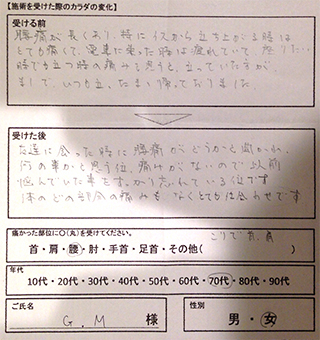 【施術を受けた際のカラダの変化】
受ける前
腰痛が長くあり、特にイスから立ち上がる時は
とても痛くて、電車に乗った時は疲れていて、座りたい
時でも立つ時の痛みを思うと、立っていた方が
ましで、いつも立ったまま帰っておりました
受けた後
友達に会った時に腰痛がどうかと聞かれ、
何の事かと思う位、痛みがないので以前
悩んでいた事をすっかり忘れている位です
体のどの部分の痛みもなくとても幸せです
痛かった部位に○(丸)を受けてください。
こりで首、肩
首・肩・腰・肘・手首・足首・その他( )
年代
10代・20代・30代・40代・50代・60代・70代・80代・90代
ご氏名
G.M 様
性別
男・女